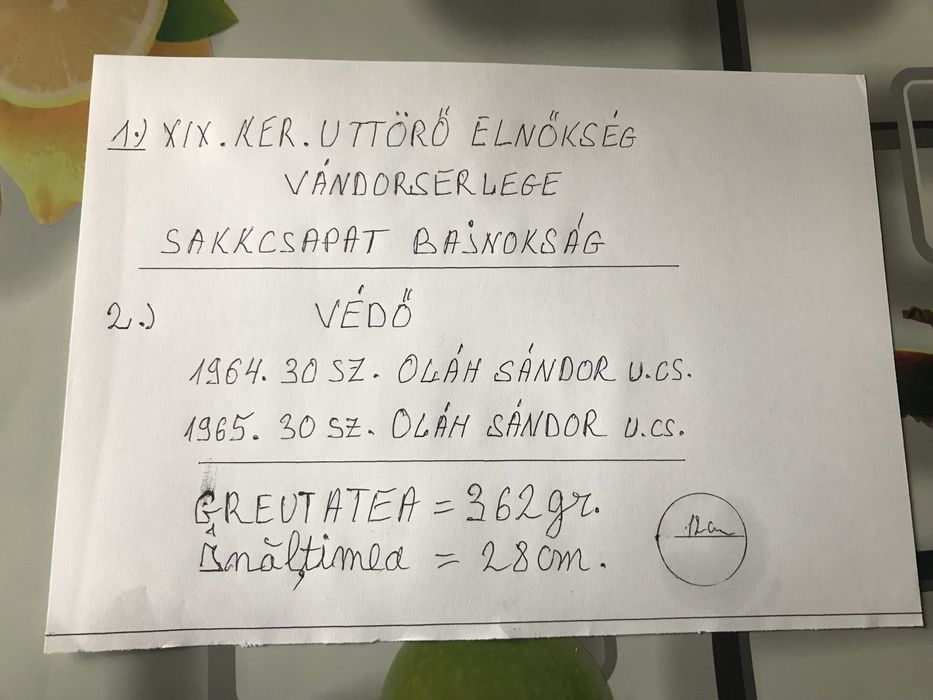 1.) XIX. KER. UTTÖRŐ ELNŐKSÉG
VÁNDORSERLEGE
SAKKCSAPAT BAJNOKSÁG
2.) VÉDŐ
1964. 30 SZ. OLÁH SÁNDOR U.CS.
1965. 30 SZ. OLÁH SÁNDOR U.CS.
GREUTATEA = 362gr.
Înălțimea = 28cm.
12cm